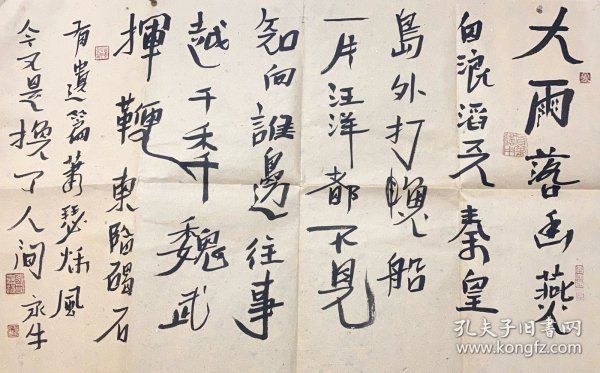 大雨落幽燕
白浪滔天秦皇
島外打魚船
一片汪洋都不見
知向誰邊往事
越千年魏武
揮鞭東臨碣石
有遺篇蕭瑟秋風
今又是換了人间 永生
孔夫子旧书网
www.kongfz.com